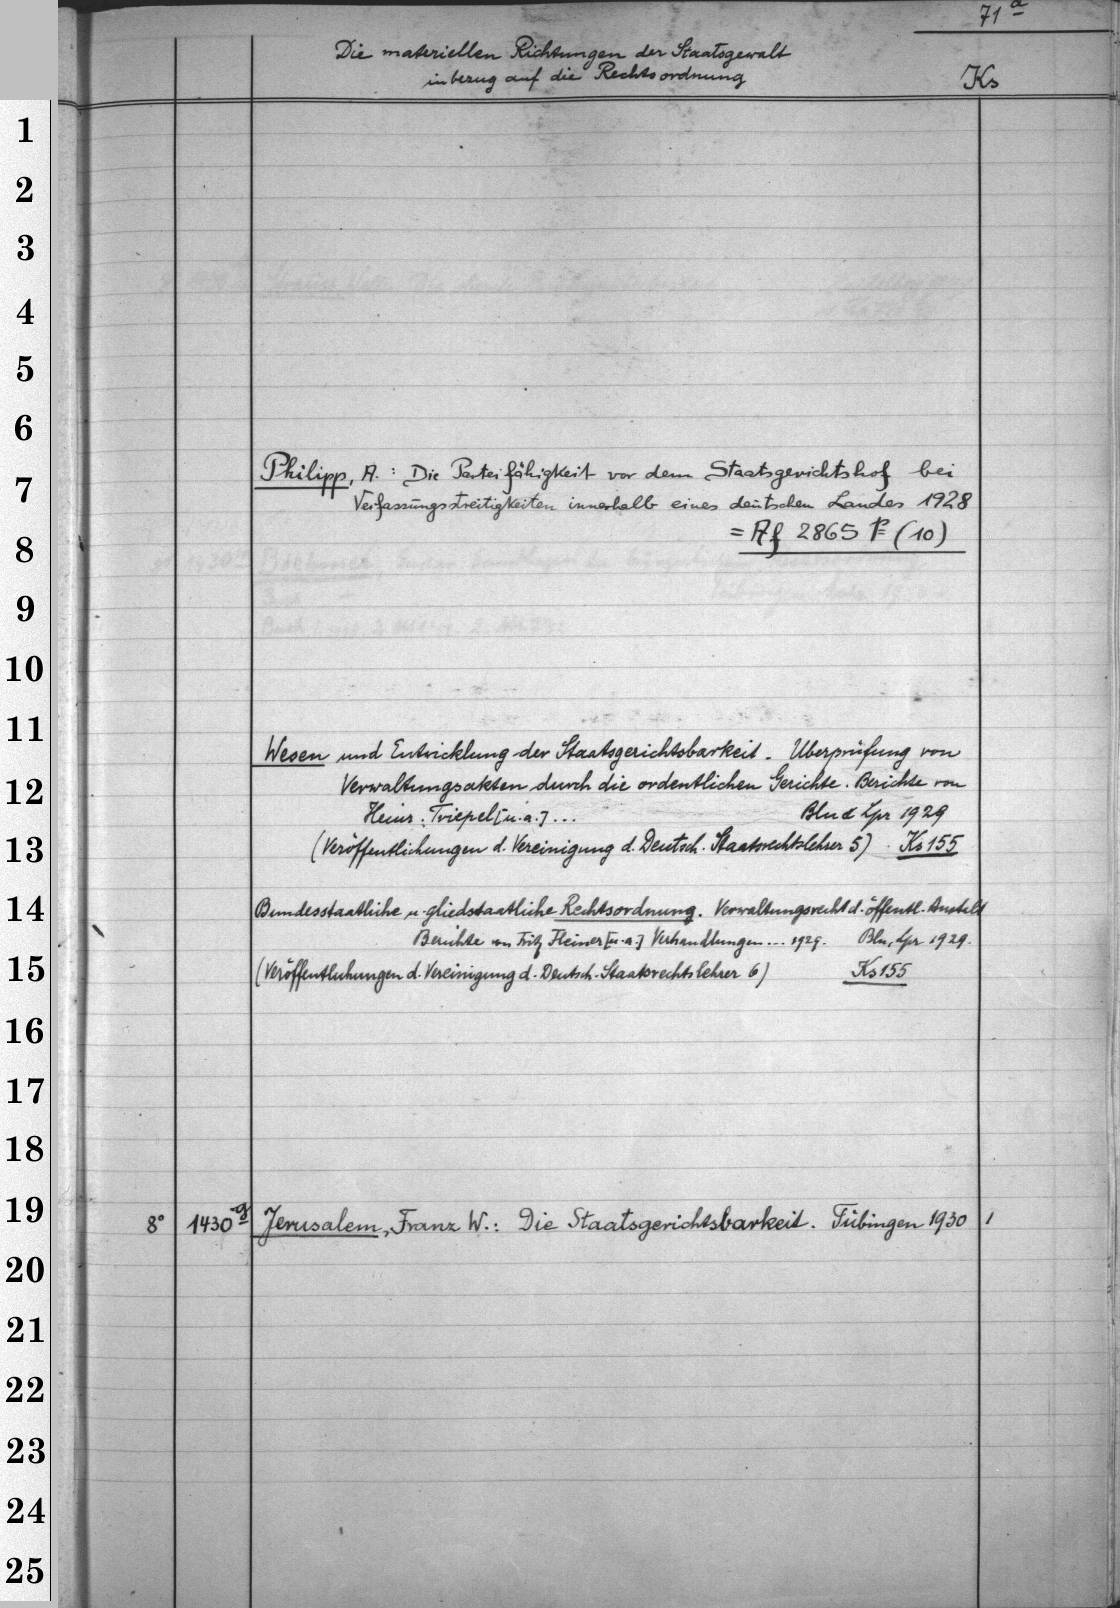 71 a
Die materiellen Richtungen der Staatsgewalt
in bezug auf die Rechtsordnung
Ks
1
2
3
4
5
6
Philipp, A.: Die Parteifähigkeit vor dem Staatsgerichtshof bei
7
Verfassungsstreitigkeiten innerhalb eines deutschen Landes 1928
= Af 2865 P (10)
8
9
10
11
Wesen und Entwicklung der Staatsgerichtsbarkeit. Überprüfung von
12
Verwaltungsakten durch die ordentlichen Gerichte. Berichte von
Heinr. Triepel [u. a.] ... Bln & Lpz 1929
13
(Veröffentlichungen d. Vereinigung d. Deutsch. Staatsrechtslehrer 5) Ks 155
14
Bundesstaatliche u. gliedstaatliche Rechtsordnung. Verwaltungsrecht d. öffentl. Anstalt
Berichte von Fritz Fleiner [u. a.] Verhandlungen ... 1929. Bln, Lpz 1929.
15
(Veröffentlichungen d. Vereinigung d. Deutsch. Staatsrechtslehrer 6) Ks 155
16
17
18
19
8° 1430 g Jerusalem, Franz W.: Die Staatsgerichtsbarkeit. Tübingen 1930 1
20
21
22
23
24
25